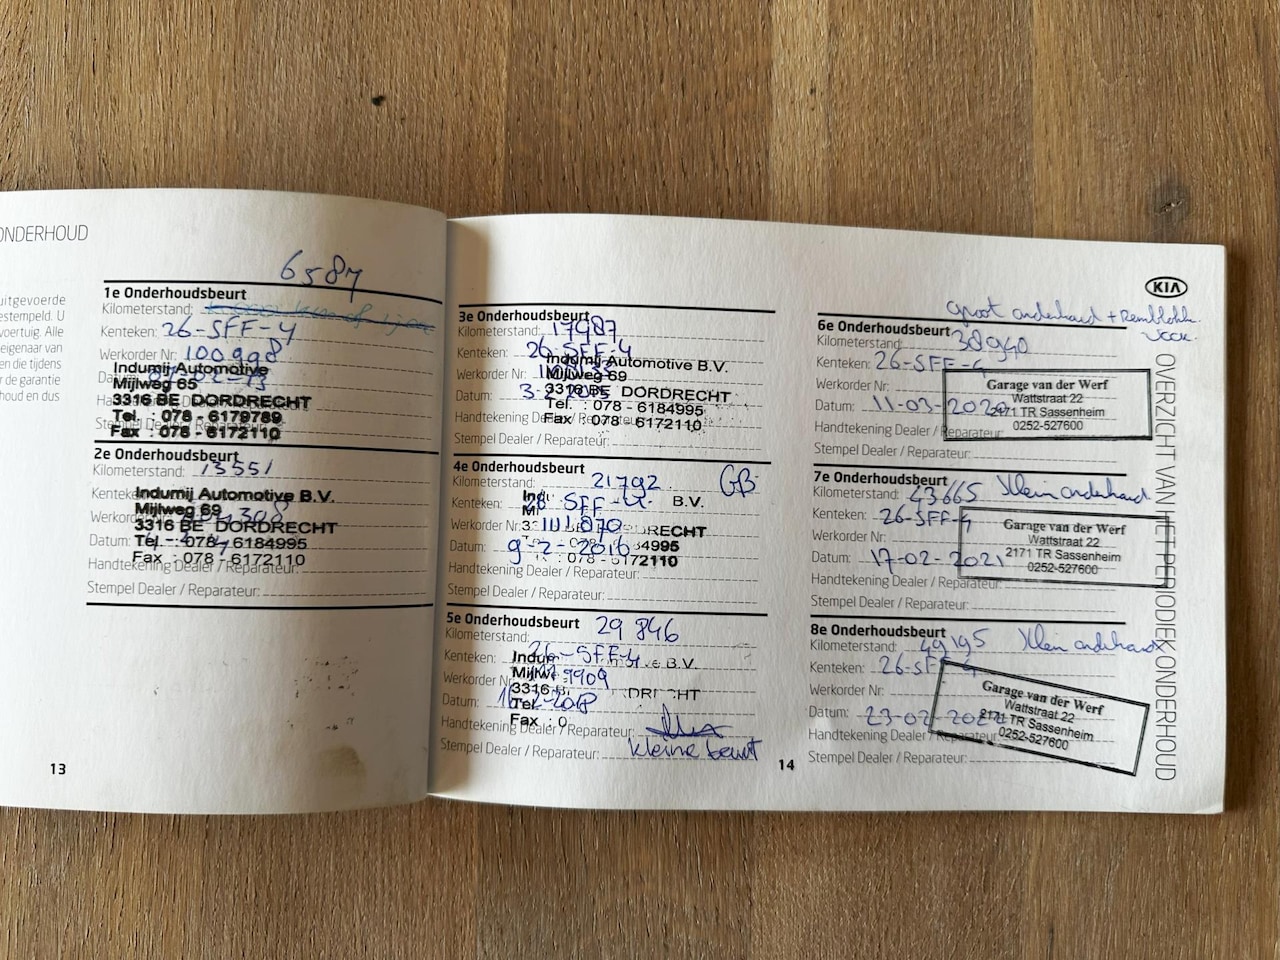 ONDERHOUD
uitgevoerde
estempeld. U
voertuig. Alle
eigenaar van
en die tijdens
r de garantie
houd en dus
6587
1e Onderhoudsbeurt
Kilometerstand:
Kenteken: 26-SFF-4
Werkorder Nr: 100998
Indumij Automotive
Mijlweg 65
3316 BE DORDRECHT
Tel. : 078 - 6179789
Fax : 078 - 6172110
2e Onderhoudsbeurt
Kilometerstand: 13551
Indumij Automotive B.V.
Mijlweg 69
3316 BE DORDRECHT
Tel. : 078 - 6184995
Fax : 078 - 6172110
Handtekening Dealer / Reparateur:
Stempel Dealer / Reparateur:
13
3e Onderhoudsbeurt
Kilometerstand: 17987
Kenteken: 26-SFF-4
Indumij Automotive B.V.
Werkorder Nr:
Mijlweg 69
Datum:
3316 BE DORDRECHT
Tel. : 078 - 6184995
Handtekening Dealer / Reparateur:
Fax : 078 - 6172110
Stempel Dealer / Reparateur:
4e Onderhoudsbeurt
Kilometerstand: 21792 GB
Kenteken: 26-SFF-4 B.V.
Werkorder Nr: 111870
Datum: 9-2-2016
Handtekening Dealer / Reparateur:
Stempel Dealer / Reparateur:
5e Onderhoudsbeurt 29846
Kilometerstand:
Kenteken: 26-SFF-4
Werkorder Nr:
Datum:
Handtekening Dealer / Reparateur:
Stempel Dealer / Reparateur: kleine beurt
14
KIA
Groot onderhoud + Remblokken
voor.
6e Onderhoudsbeurt
Kilometerstand: 38940
Kenteken: 26-SFF-4
Werkorder Nr:
Datum: 11-03-2020
Handtekening Dealer / Reparateur:
Stempel Dealer / Reparateur:
Garage van der Werf
Wattstraat 22
2171 TR Sassenheim
0252-527600
7e Onderhoudsbeurt
Kilometerstand: 43665 Klein onderhoud
Kenteken: 26-SFF-4
Werkorder Nr:
Datum: 17-02-2021
Handtekening Dealer / Reparateur:
Stempel Dealer / Reparateur:
Garage van der Werf
Wattstraat 22
2171 TR Sassenheim
0252-527600
8e Onderhoudsbeurt
Kilometerstand: 49195 Klein onderhoud
Kenteken: 26-SFF-4
Werkorder Nr:
Datum: 23-02-2022
Handtekening Dealer / Reparateur:
Stempel Dealer / Reparateur:
Garage van der Werf
Wattstraat 22
2171 TR Sassenheim
0252-527600
OVERZICHT VAN HET PERIODIEK ONDERHOUD